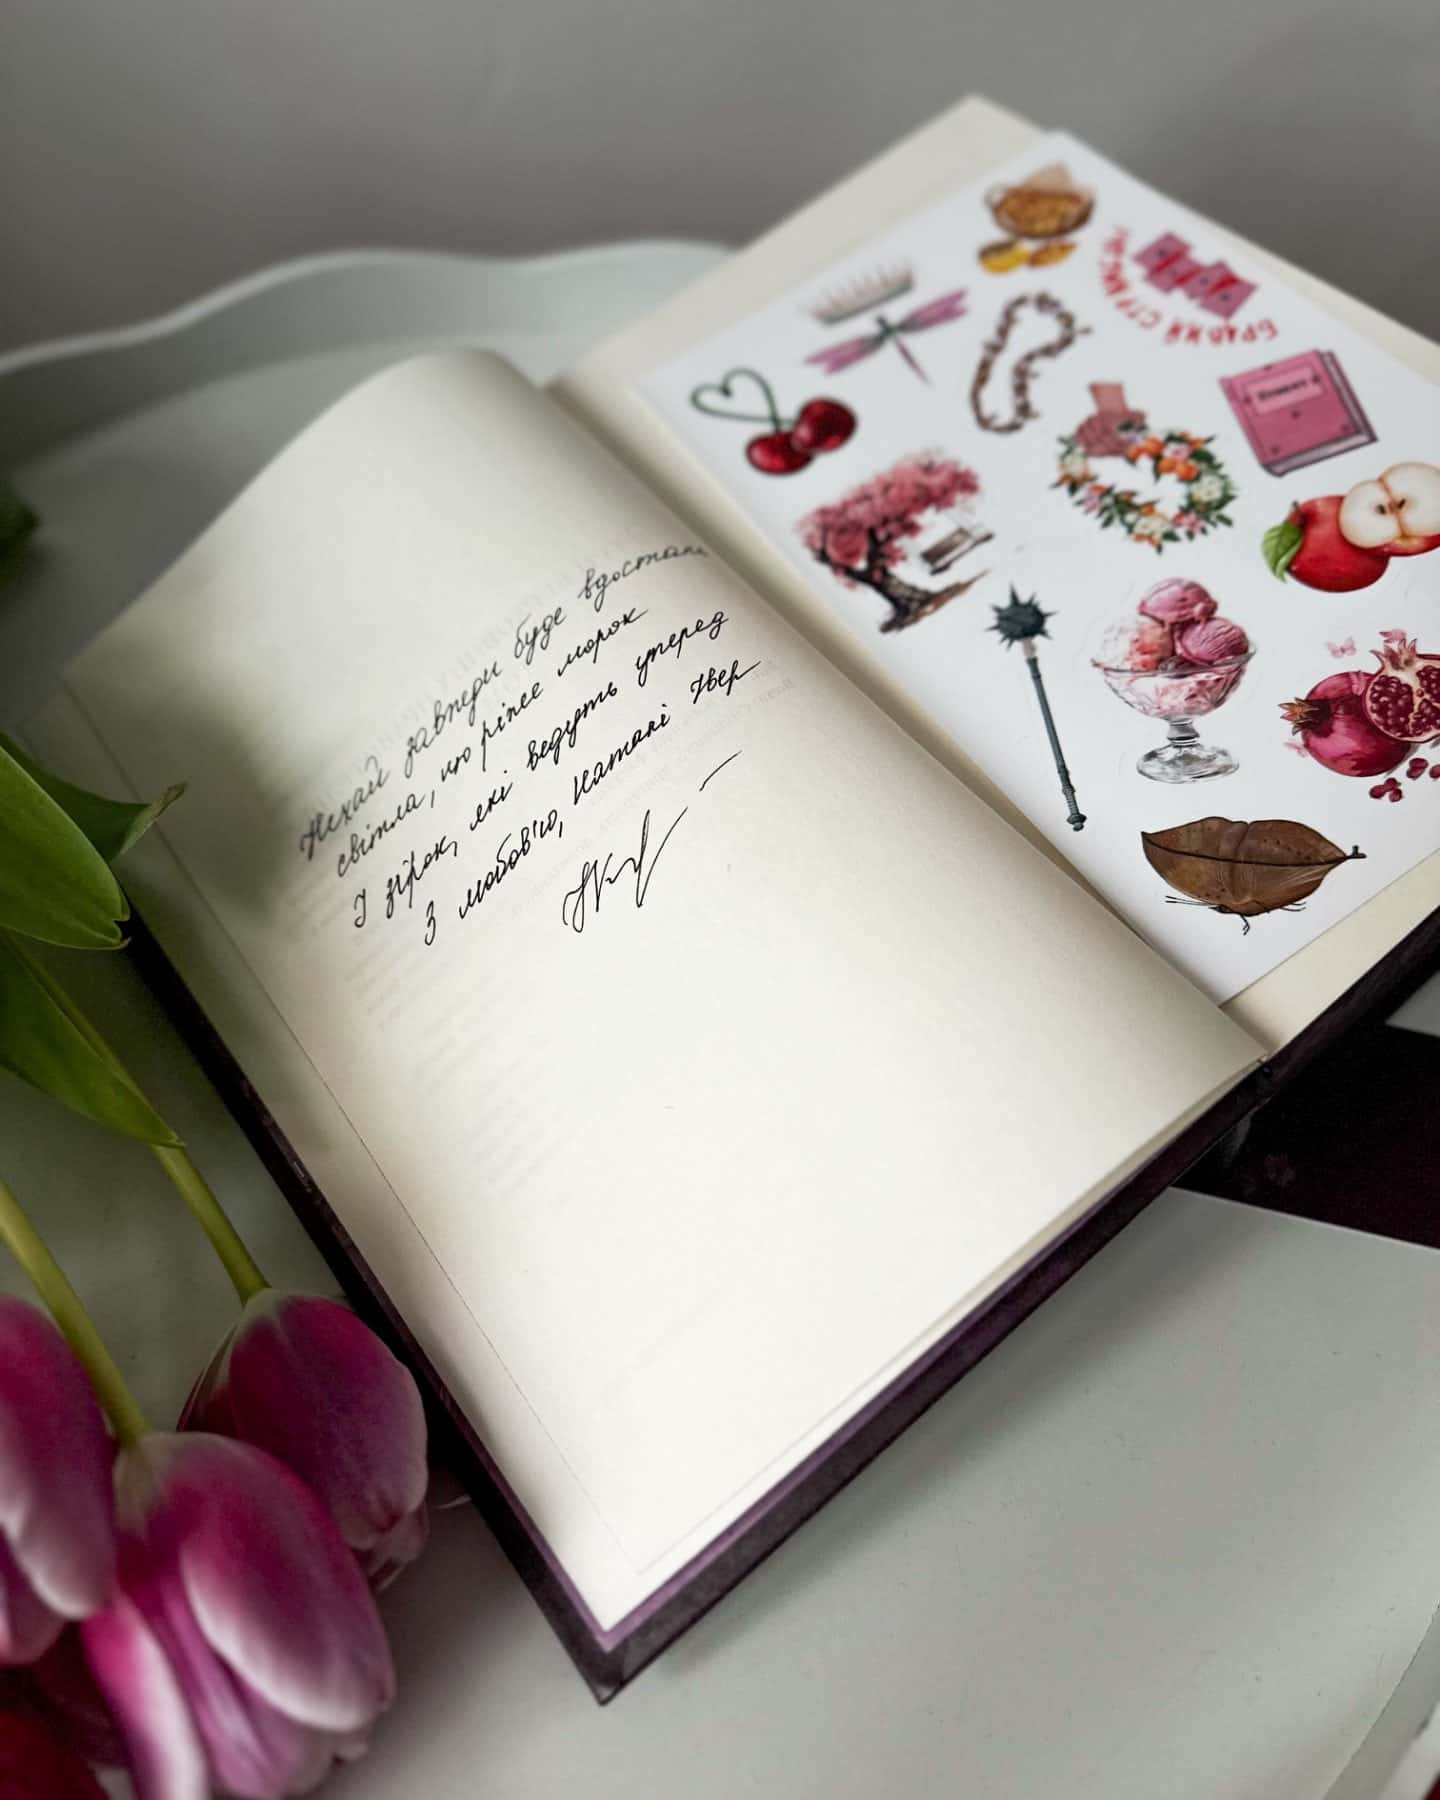 Нехай завжди буде вдосталь
світла, що ріже морок
І зірок, які ведуть уперед
З любов'ю, Наталі Звер